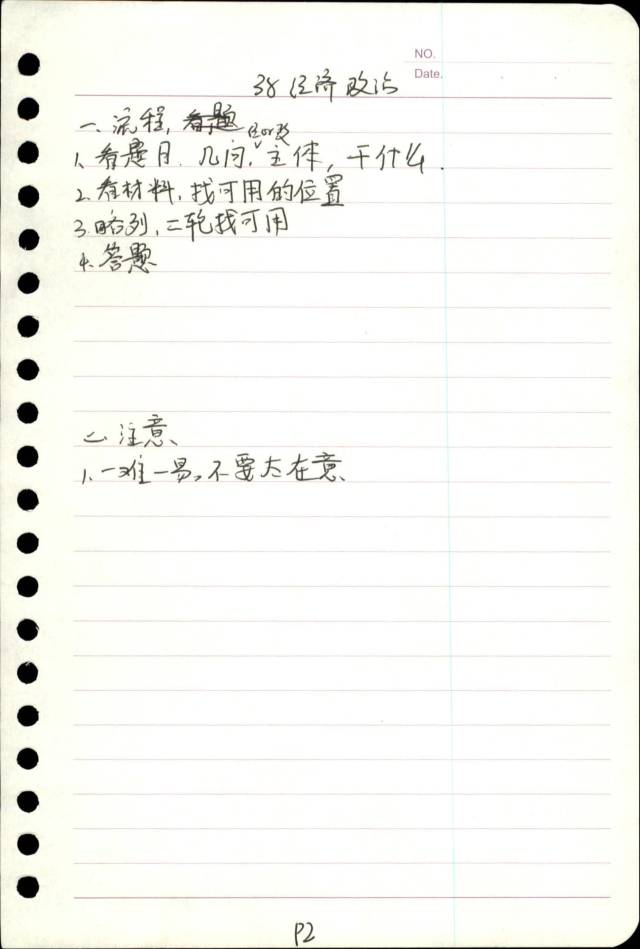 NO.
Date.
38 经济政治
一、流程, 看题
1、看题目. 几问, 经or政 主体, 干什么.
2. 看材料, 找可用的位置
3. 略列, 二轮找可用
4. 答题
二、注意、
1、一难一易, 不要太在意、
P2